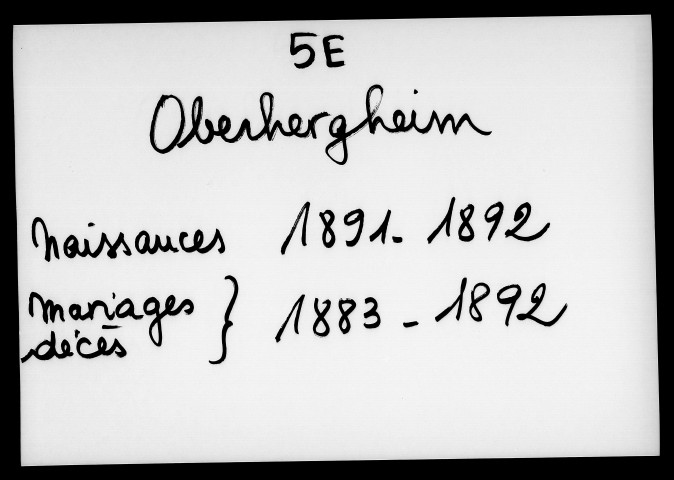 5E
Oberhergheim
Naissances 1891-1892
Mariages } 1883-1892
décès